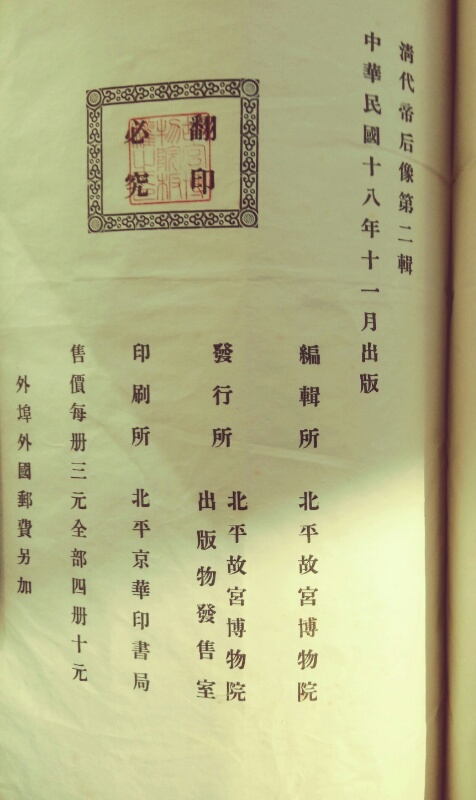 清代帝后像第二輯
中華民國十八年十一月出版
翻印
必究
編輯所 北平故宮博物院
發行所 北平故宮博物院
出版物發售室
印刷所 北平京華印書局
售價每册三元全部四册十元
外埠外國郵費另加